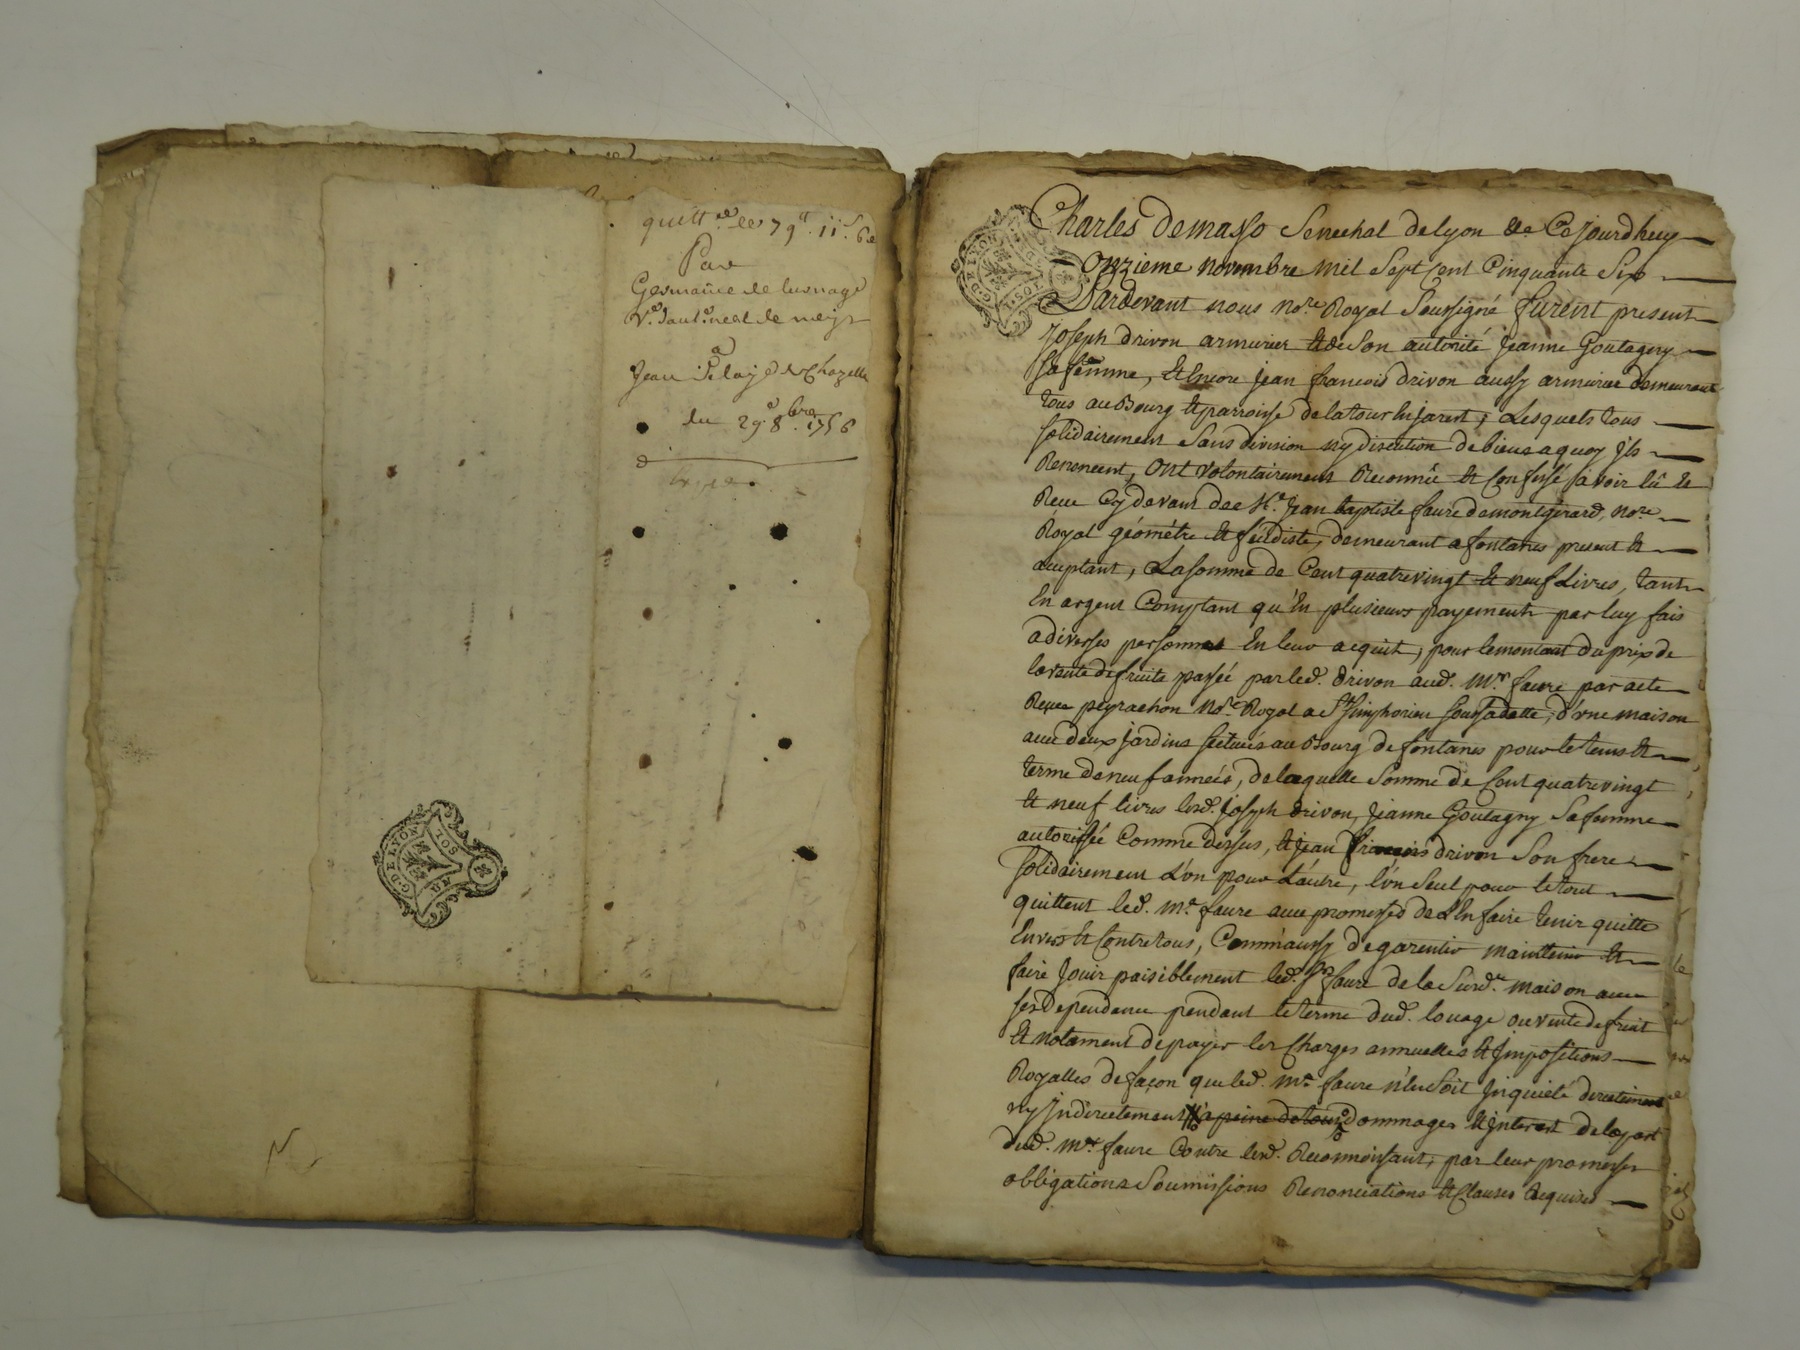 quitt.ce de 79.lt 11.s 6.d
Par
Germaine de lusnage
V.e
a
Jean Delaye de Chazelle
du 29.e 8.bre 1756
G.DE LYON
SOL
AU
G.DE LYON
SOL
Charles Demasso Senechal de lyon &a Cejourdhuy
onzieme novembre mil Sept Cent Cinquante Six
Pardevant nous no.re Royal Soussigné furent present
Joseph drivon armurier & de Son autorité Jeanne Goutagny
Sa femme, & Encore Jean francois drivon aussy armurier demeurant
tous au Bourg & parroisse de latour En Jarest, Lesquels tous
Solidairement Sans division ny discution de biens a quoy Jls
Renoncent, ont volontairement Reconnu & Confessé avoir Eû &
Receu Cy devant de M.e Jean baptiste faure demontgirard, no.re
Royal géométre & féudiste, demeurant a fontanes present &
aceptant, La somme de Cent quatrevingt & neuf Livres, tant
En argent Comptant qu'En plusieurs payements par luy fais
a diverses personnes En leur acquit, pour lemontant du prix de
lavente defruits passée par led. drivon aud. M.r faure par acte
Receu peyrachon no.re Royal a S.t Simphorien, d'vne maison
avec deux Jardins scitués au Bourg de fontanes pour le tems &
terme de neuf années, delaquelle Somme de Cent quatrevingt
& neuf livres lesd. Joseph drivon, Jeanne Goutagny Sa femme
autorisée Comme dessus, & Jean francois drivon Son frere
Solidairement L'un pour L'autre, l'vn Seul pour le tout
quittent led. M.e faure avec promesses de L'En faire tenir quitte
Envers & Contre tous, Comm'aussy de garentir maintenir &
faire Jouir paisiblement led. S.r faure de la Susd.e maison avec
ses dependance pendant le terme dud. louage ou vente de fruit
& notament de payer les Charges annuelles & Jmpositions
Royalles de façon que led. M.e faure n'En Soit Jnquieté directement
ny Jndirectement a peine de tous dommages & Jnterest de la part
dud. M.e faure Contre lesd. Reconnoissant, par leur promesses
obligations Soumissions Renonciations & Clauses Requises